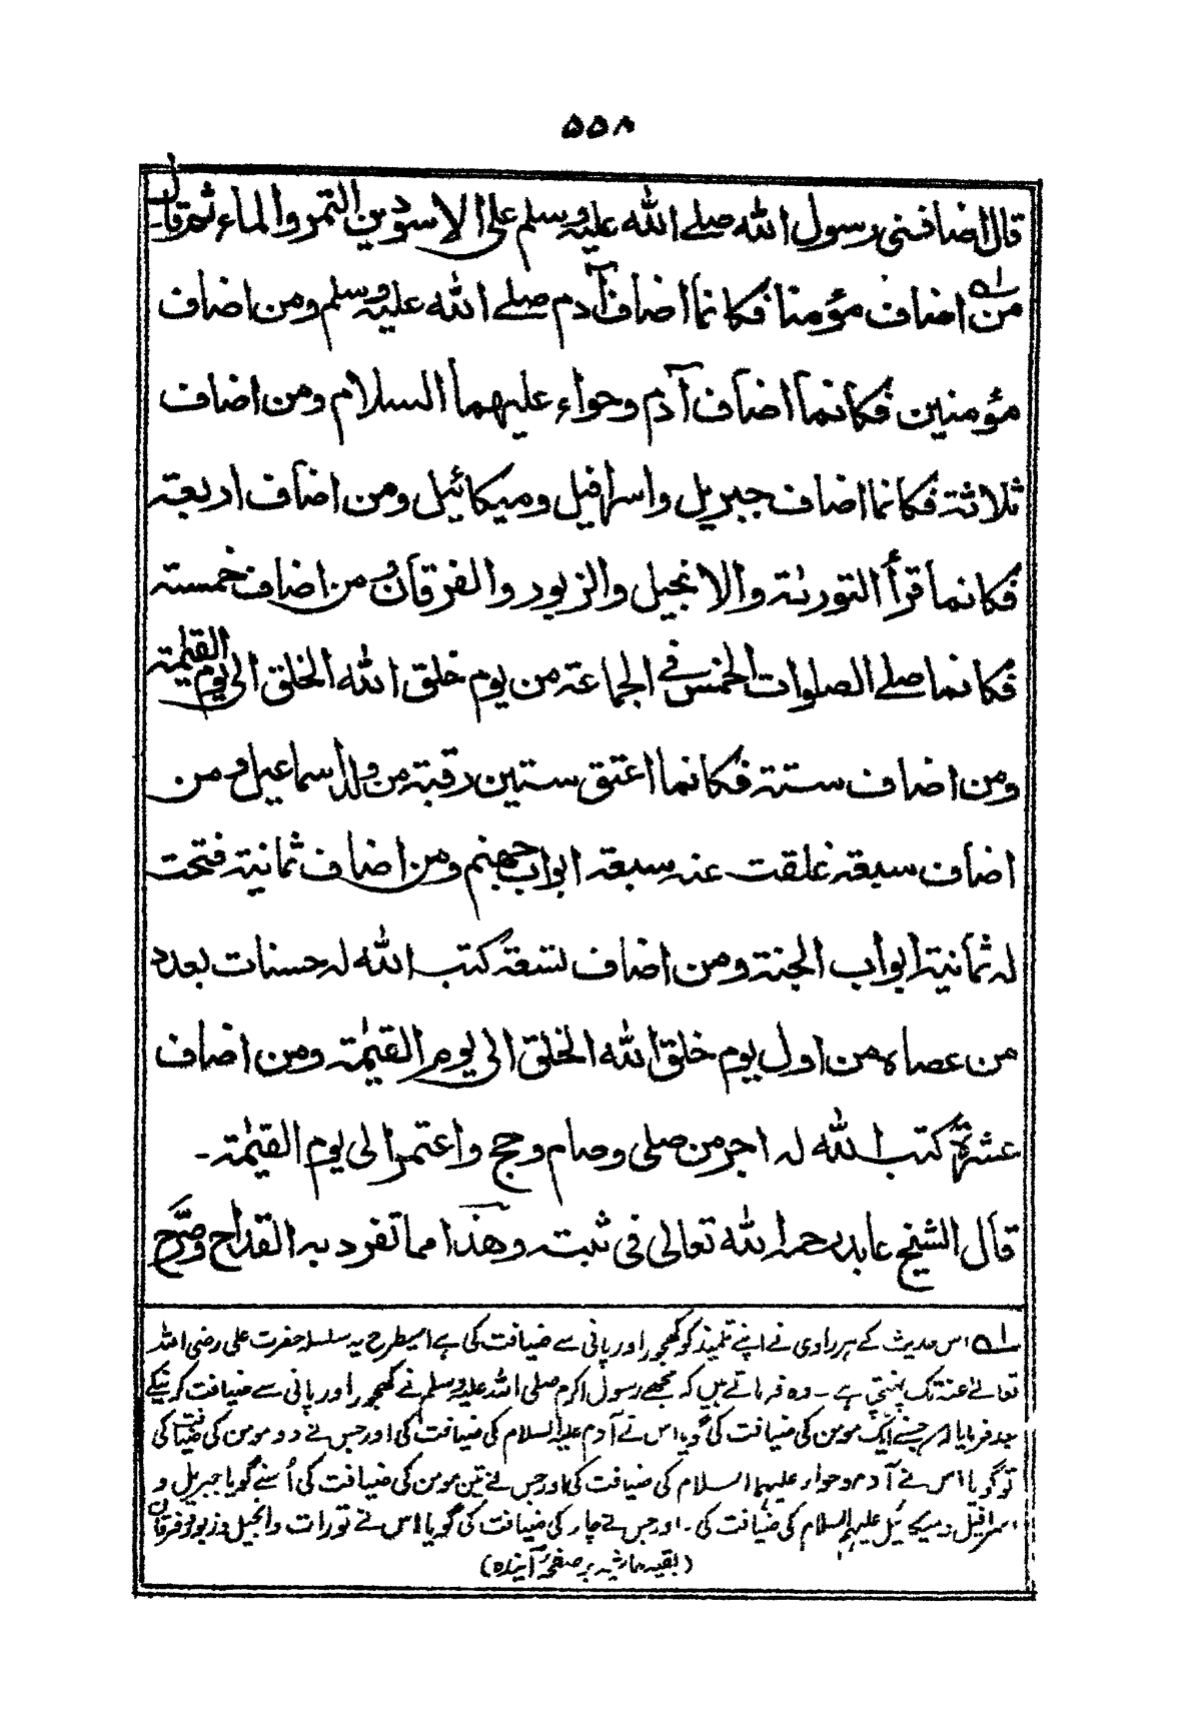 ۵۵۸
قال اضافنی رسول الله صلے الله علیه وسلم علی الاسودین التمر والماء ثم قال
من اضاف مؤمنا فکانما اضاف آدم صلے الله علیه وسلم ومن اضاف
مؤمنین فکانما اضاف آدم وحواء علیهما السلام ومن اضاف
ثلاثة فکانما اضاف جبریل واسرافیل ومیکائیل ومن اضاف اربعة
فکانما قرأ التورىٰة والانجیل والزبور والفرقان ومن اضاف خمسة
فکانما صلے الصلوات الخمس فے الجماعة من یوم خلق الله الخلق الی یوم القیٰمة
ومن اضاف ستة فکانما اعتق ستین رقبة من ولد اسماعیل ومن
اضاف سبعة غلقت عنه سبعة ابواب جهنم ومن اضاف ثمانیة فتحت
له ثمانیة ابواب الجنة ومن اضاف تسعة کتب الله له حسنات بعدد
من عصاه من اول یوم خلق الله الخلق الی یوم القیٰمة ومن اضاف
عشرة کتب الله له اجر من صلی وصام وحج واعتمر الی یوم القیٰمة۔
قال الشیخ عابد رحمه الله تعالی فی ثبته وهذا مما تفرد به القداح وصرَّح
لہ اس حدیث کے ہر راوی نے اپنے تلمیذ کو کھجور اور پانی سے ضیافت کی ہے اسیطرح یہ سلسلہ حضرت علی رضی اللہ
تعالےٰ عنہ تک پہنچتی ہے ۔ وہ فرماتے ہیں کہ مجھے رسول اکرم صلی اللہ علیہ وسلم نے کھجور اور پانی سے ضیافت کرنیکے
بعد فرمایا کہ جسنے ایک مومن کی ضیافت کی گویا اس نے آدم علیہ السلام کی ضیافت کی اور جس نے دو مومن کی ضیافت کی
تو گویا اس نے آدم و حواء علیہما السلام کی ضیافت کی اور جس نے تین مومن کی ضیافت کی اُسنے گویا جبریل و
اسرافیل و میکائیل علیہم السلام کی ضیافت کی ۔ اور جس نے چار کی ضیافت کی گویا اس نے تورات و انجیل و زبور و فرقان
(بقیہ حاشیہ بر صفحہ آیندہ)